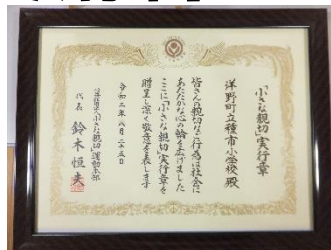 「小さな親切」実行章
洋野町立種市小学校殿
皆さんの親切な行為は社会に
あたたかな心の輪を広げました
ここに「小さな親切」実行章を
贈呈し深く敬意を表します
令和二年八月二十五日
公益社団法人「小さな親切」運動本部
代表 鈴木恒夫